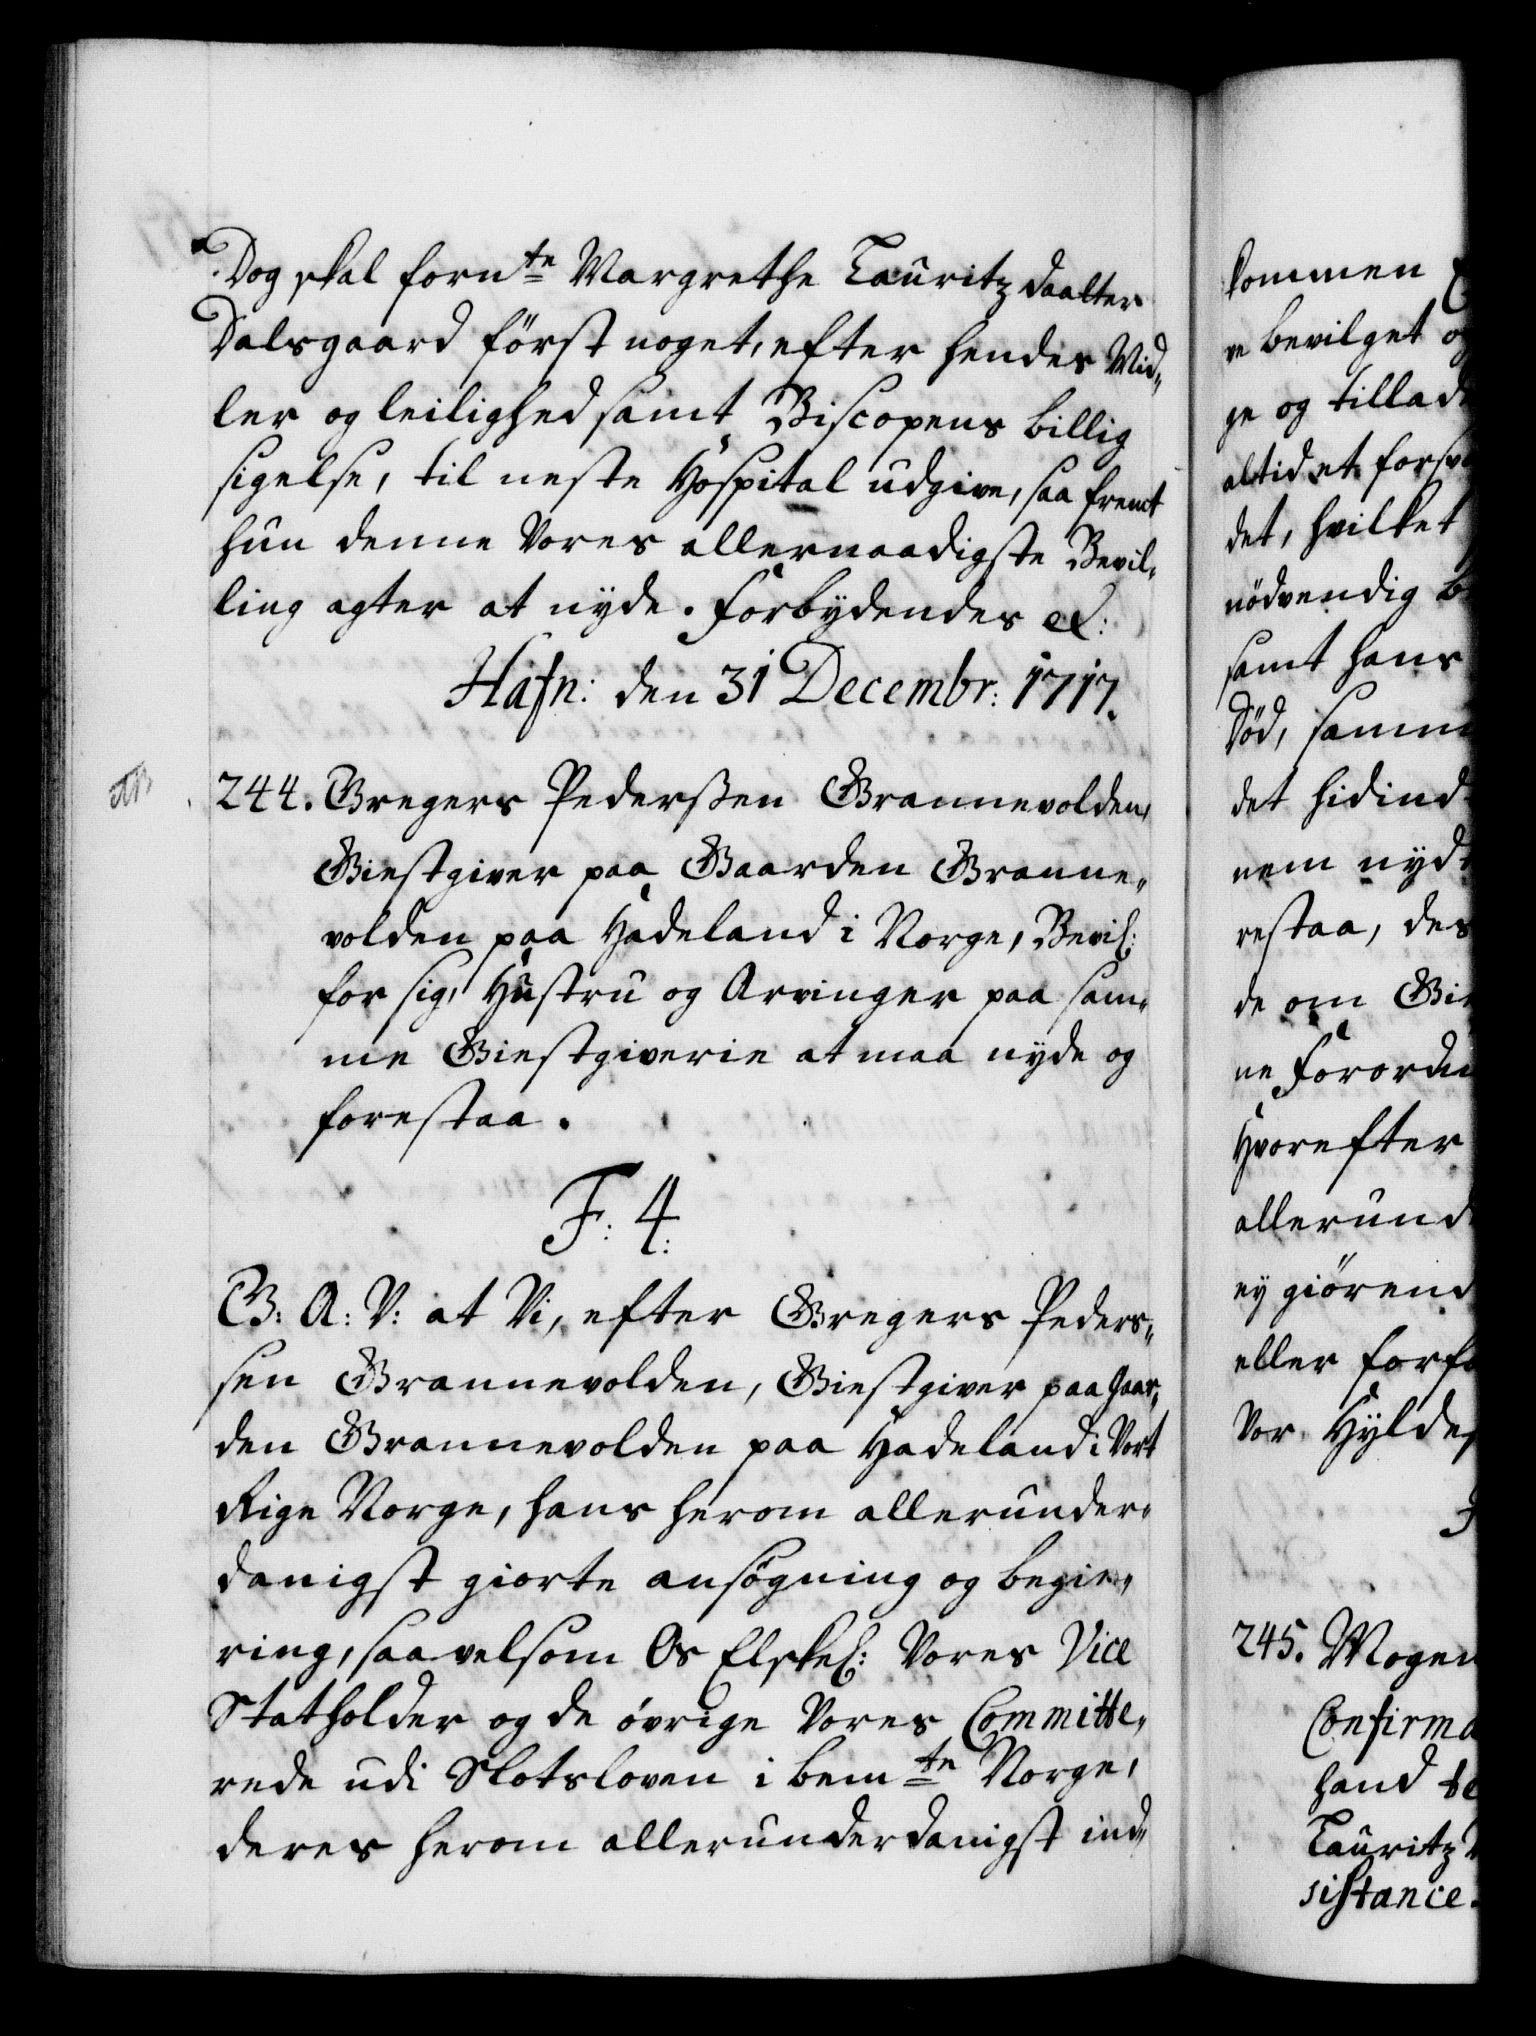 Dog skal fornte Margrethe Lauritz daatter
Dalsgaard först noget, efter hendes Mid,,
ler og leilighed samt Biscopens billig
sigelse, til neste Hospital udgive, saa fremt
hun denne Vores allernaadigste Bevil,,
ling agter at nyde. Forbydendes &:
Hafn: den 31 Decembr: 1717.
244. Gregers Pederßen Grannevolden,
Giestgiver paa Gaarden Granne,,
volden paa Hadeland i Norge, Bevil:
for sig, Hustru og Arvinger paa sam,,
me Giestgiverie at maa nyde og
forestaa.
F: 4:
G: A: V: at Vi, efter Gregers Peders,,
sen Grannevolden, Giestgiver paa Gaar,,
den Grannevolden paa Hadeland i Vort
Rige Norge, hans herom allerunder,,
danigst giorte ansögning og begie,,
ring, saavelsom Os Elskel: Vores Vice
Statholder og de övrige Vores Committe,,
rede udi Slotsloven i bemte Norge,
deres herom allerunderdanigst ind,,
kommen
ve bevilget og
ge og tillade
altid et forsva
det, hvilket
nödvendig b
samt hans
Död, samme
det hidind
nem nyde
restaa, des
de om Gi
ne Forordn
Hvorefter
allerund
ey giörend
eller forf
Vor Hyldes
245. Mogen
Confirma
hand
Lauritz
sistance.